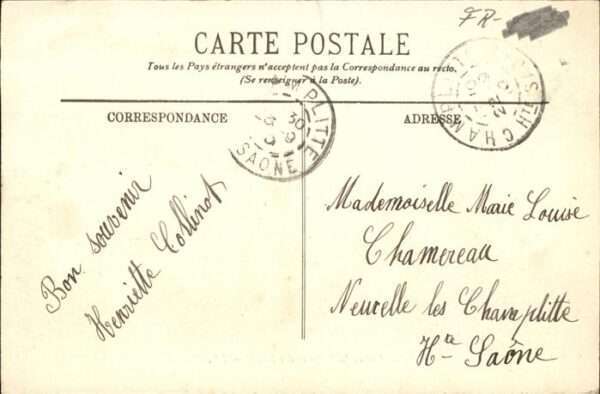 FR-
CARTE POSTALE
Tous les Pays étrangers n'acceptent pas la Correspondance au recto.
(Se renseigner à la Poste).
CORRESPONDANCE
ADRESSE
SAÔNE
Bon souvenir
Henriette Collinot
Mademoiselle Marie Louise
Chamereau
Neuvelle les Champlitte
Hte Saône